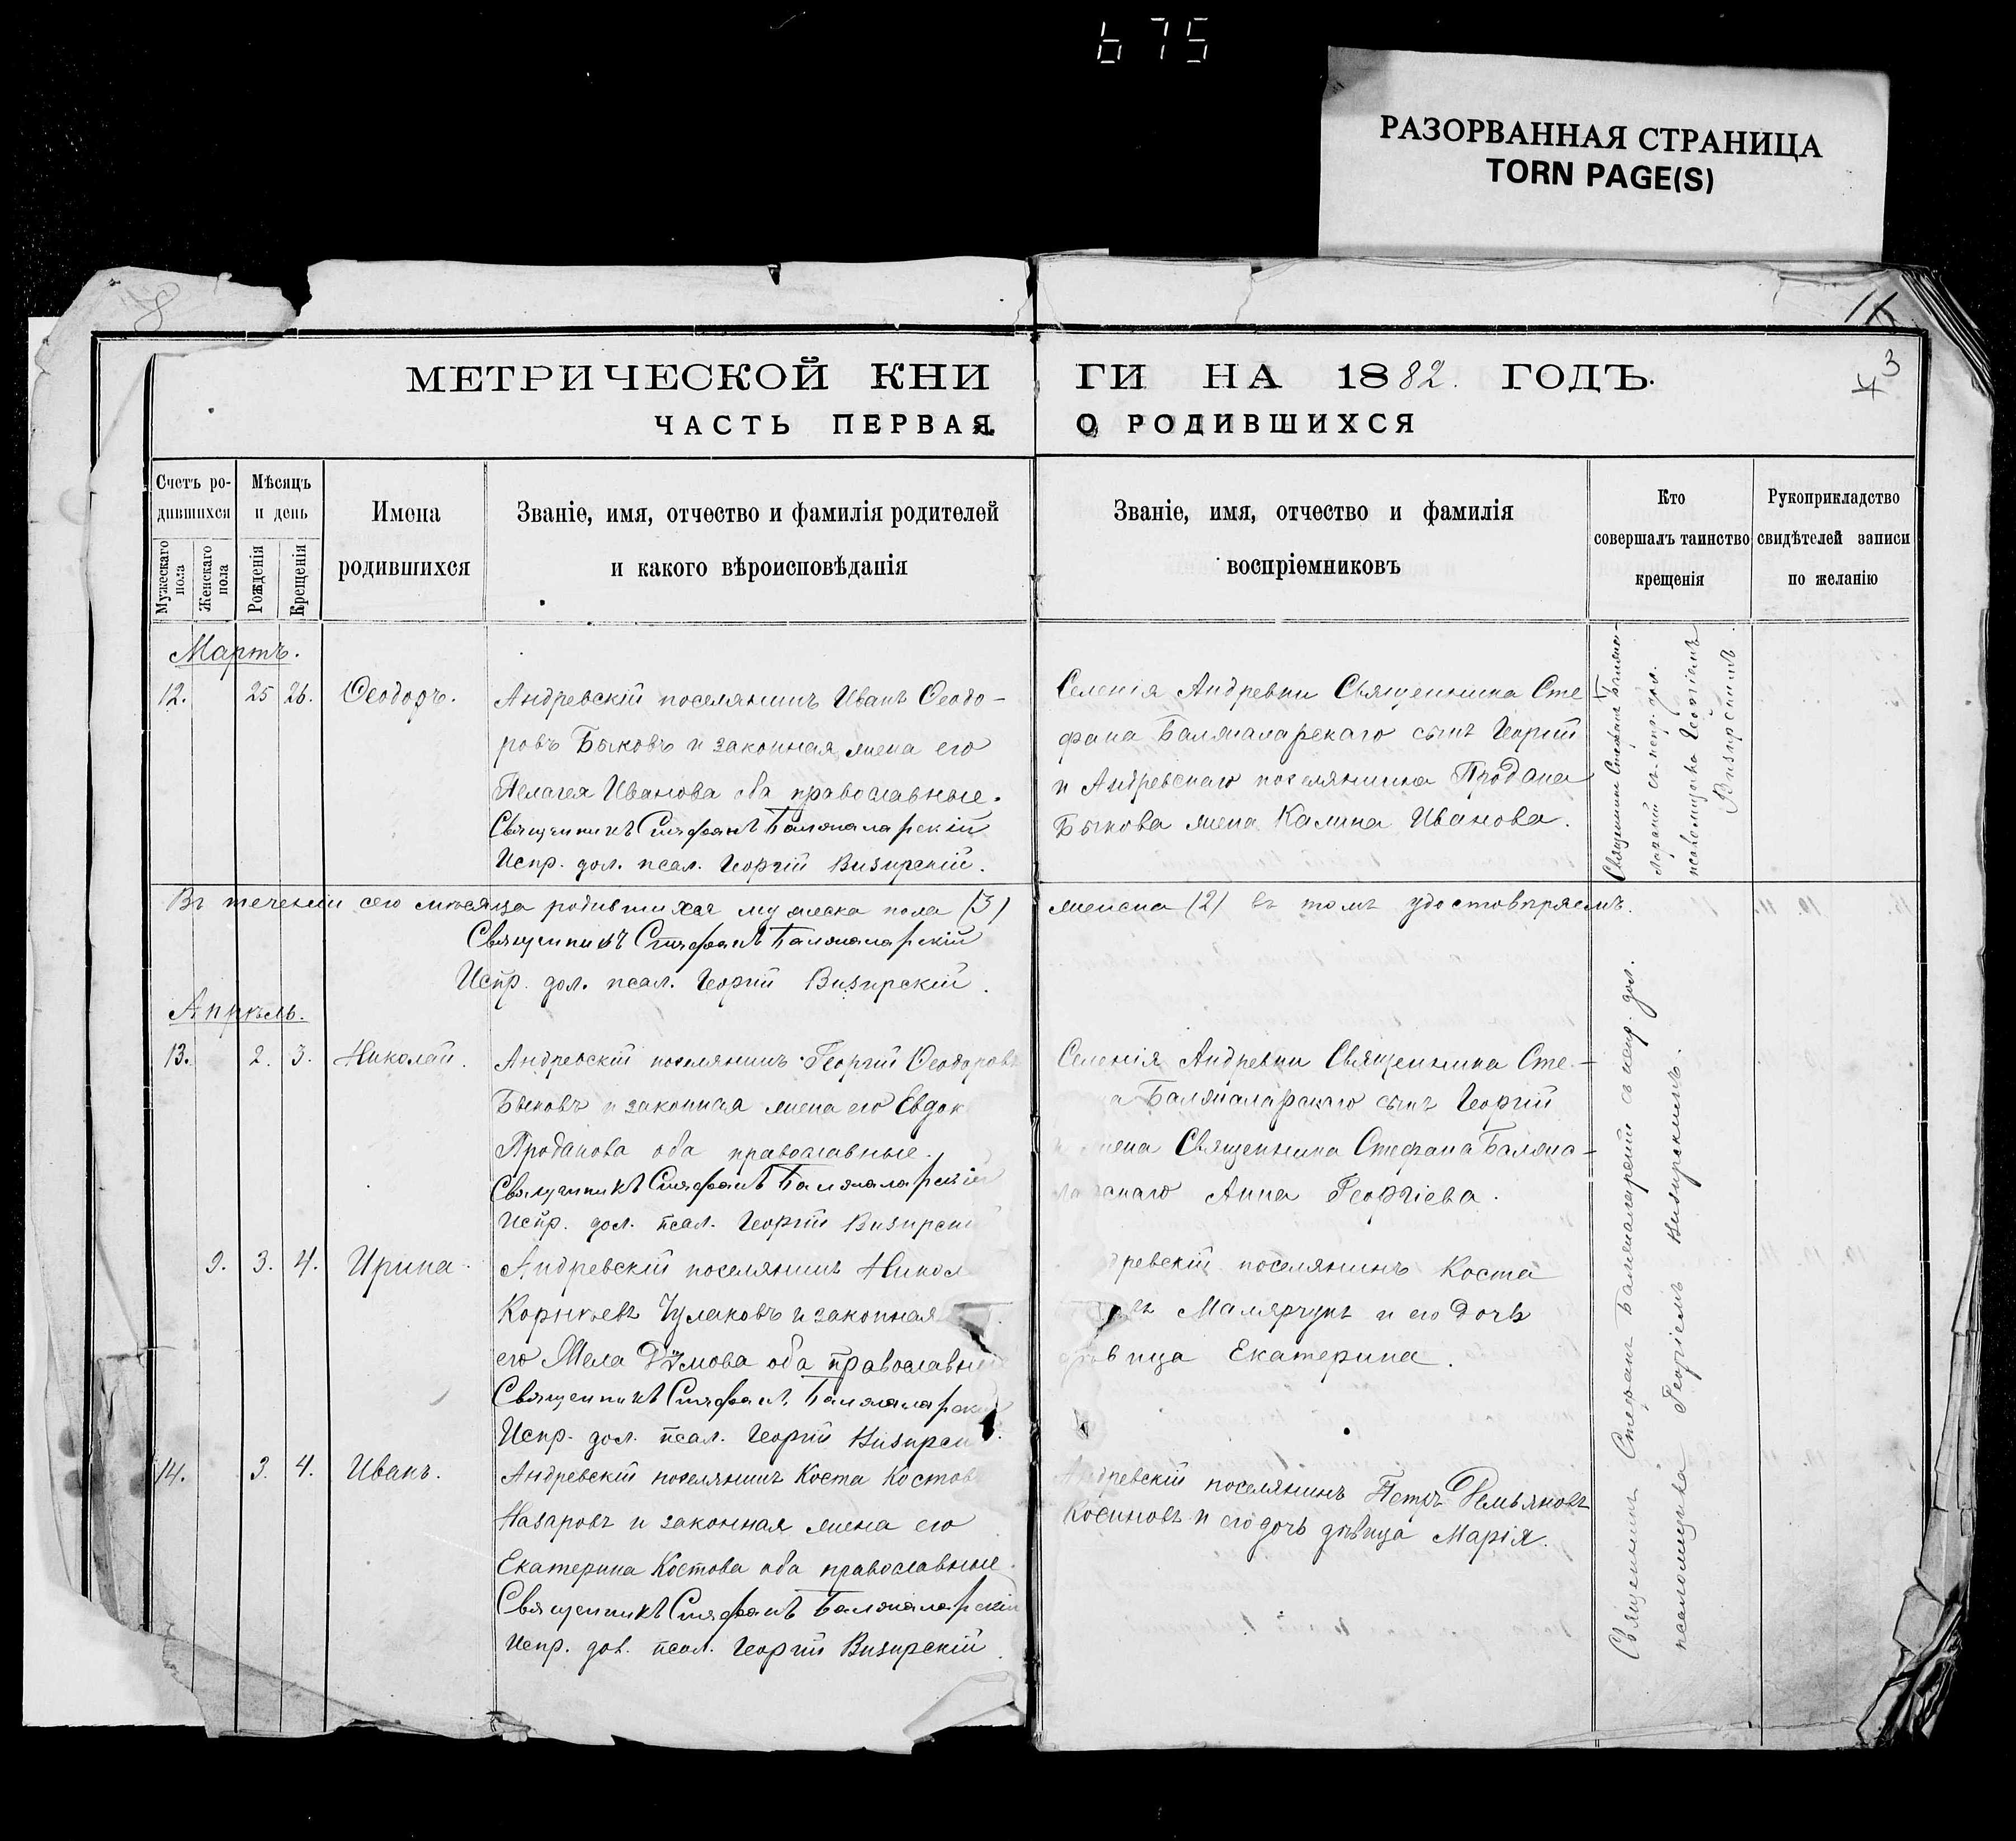 675
РАЗОРВАННАЯ СТРАНИЦА
TORN PAGE(S)
8
3
МЕТРИЧЕСКОЙ КНИГИ НА 1882. ГОДЪ.
ЧАСТЬ ПЕРВАЯ О РОДИВШИХСЯ
Счетъ ро-
дившихся
Мужескаго пола
Женскаго пола
Мѣсяцъ
и день
Рожденія
Крещенія
Имена
родившихся
Званіе, имя, отчество и фамилія родителей
и какого вѣроисповѣданія
Званіе, имя, отчество и фамилія
воспріемниковъ
Кто
совершалъ таинство
крещенія
Рукоприкладство
свидѣтелей записи
по желанію
Мартъ.
12. 25 26. Ѳеодоръ.
Андревскій поселянинъ Иванъ Ѳеодо-
ровъ Быковъ и законная жена его
Пелагея Иванова оба православные.
Священникъ Стефанъ Балжаларскій
Испр. дол. псал. Георгій Визирскій.
Селенія Андревки Священника Сте
фана Балжаларскаго сынъ Георгій
и Андревскаго поселянина Продана
Быкова жена Калина Иванова.
Священникъ Стефанъ Балжа-
ларскій съ испр. дол.
псаломщика Георгіемъ
Визирскимъ.
Въ теченіи сего мѣсяца родившихся мужеска пола (3) женска (2) въ томъ удостовѣряемъ.
Священникъ Стефанъ Балжаларскій
Испр. дол. псал. Георгій Визирскій.
Апрѣль.
13. 2. 3. Николай.
Андревскій поселянинъ Георгій Ѳеодоровъ
Быковъ и законная жена его Евдок
Проданова оба православные.
Священникъ Стефанъ Балжаларскій
Испр. дол. псал. Георгій Визирскі
Селенія Андревки Священника Сте-
а Балжаларскаго сынъ Георгій
жена Священника Стефана Балжа-
ларскаго Анна Георгіева.
9. 3. 4. Ирина.
Андревскій поселянинъ Никол
Корнѣевъ Чулаковъ и законная
его Мела оба православны
Священникъ Стефанъ Балжаларски
Испр. дол. псал. Георгій Визирскі
древскій поселянинъ Коста
въ Малярчукъ и его дочь
вица Екатерина.
14. 3. 4. Иванъ.
Андревскій поселянинъ Коста Костовъ
Назаровъ и законная жена его
Екатерина Костова оба православные.
Священникъ Стефанъ Балжаларскій
Испр. дол. псал. Георгій Визирскій.
Андревскій поселянинъ Петръ Демьяновъ
Косиновъ и его дочь дѣвица Марія.
Священникъ Стефанъ Балжаларскій съ испр. дол.
псаломщика Георгіемъ Визирскимъ.